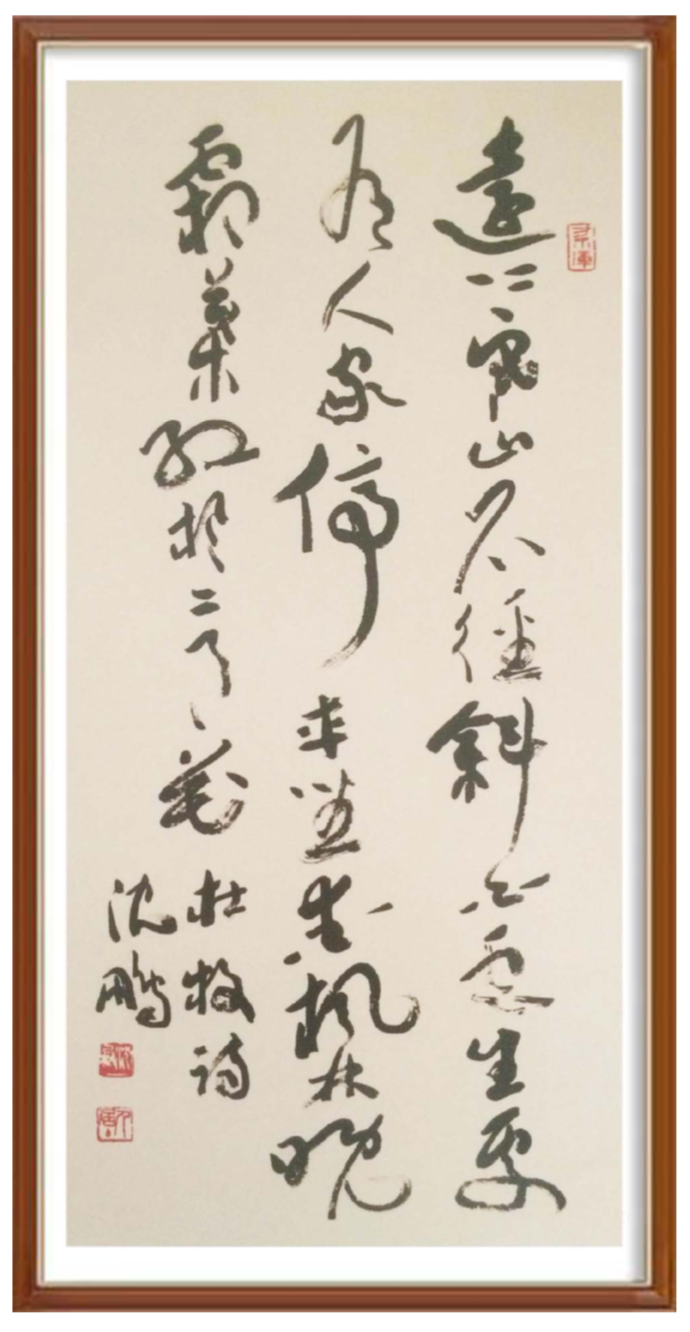 遠上寒山石徑斜白雲生處
有人家停車坐愛楓林晚
霜葉紅於二月花
杜牧詩
沈鵬